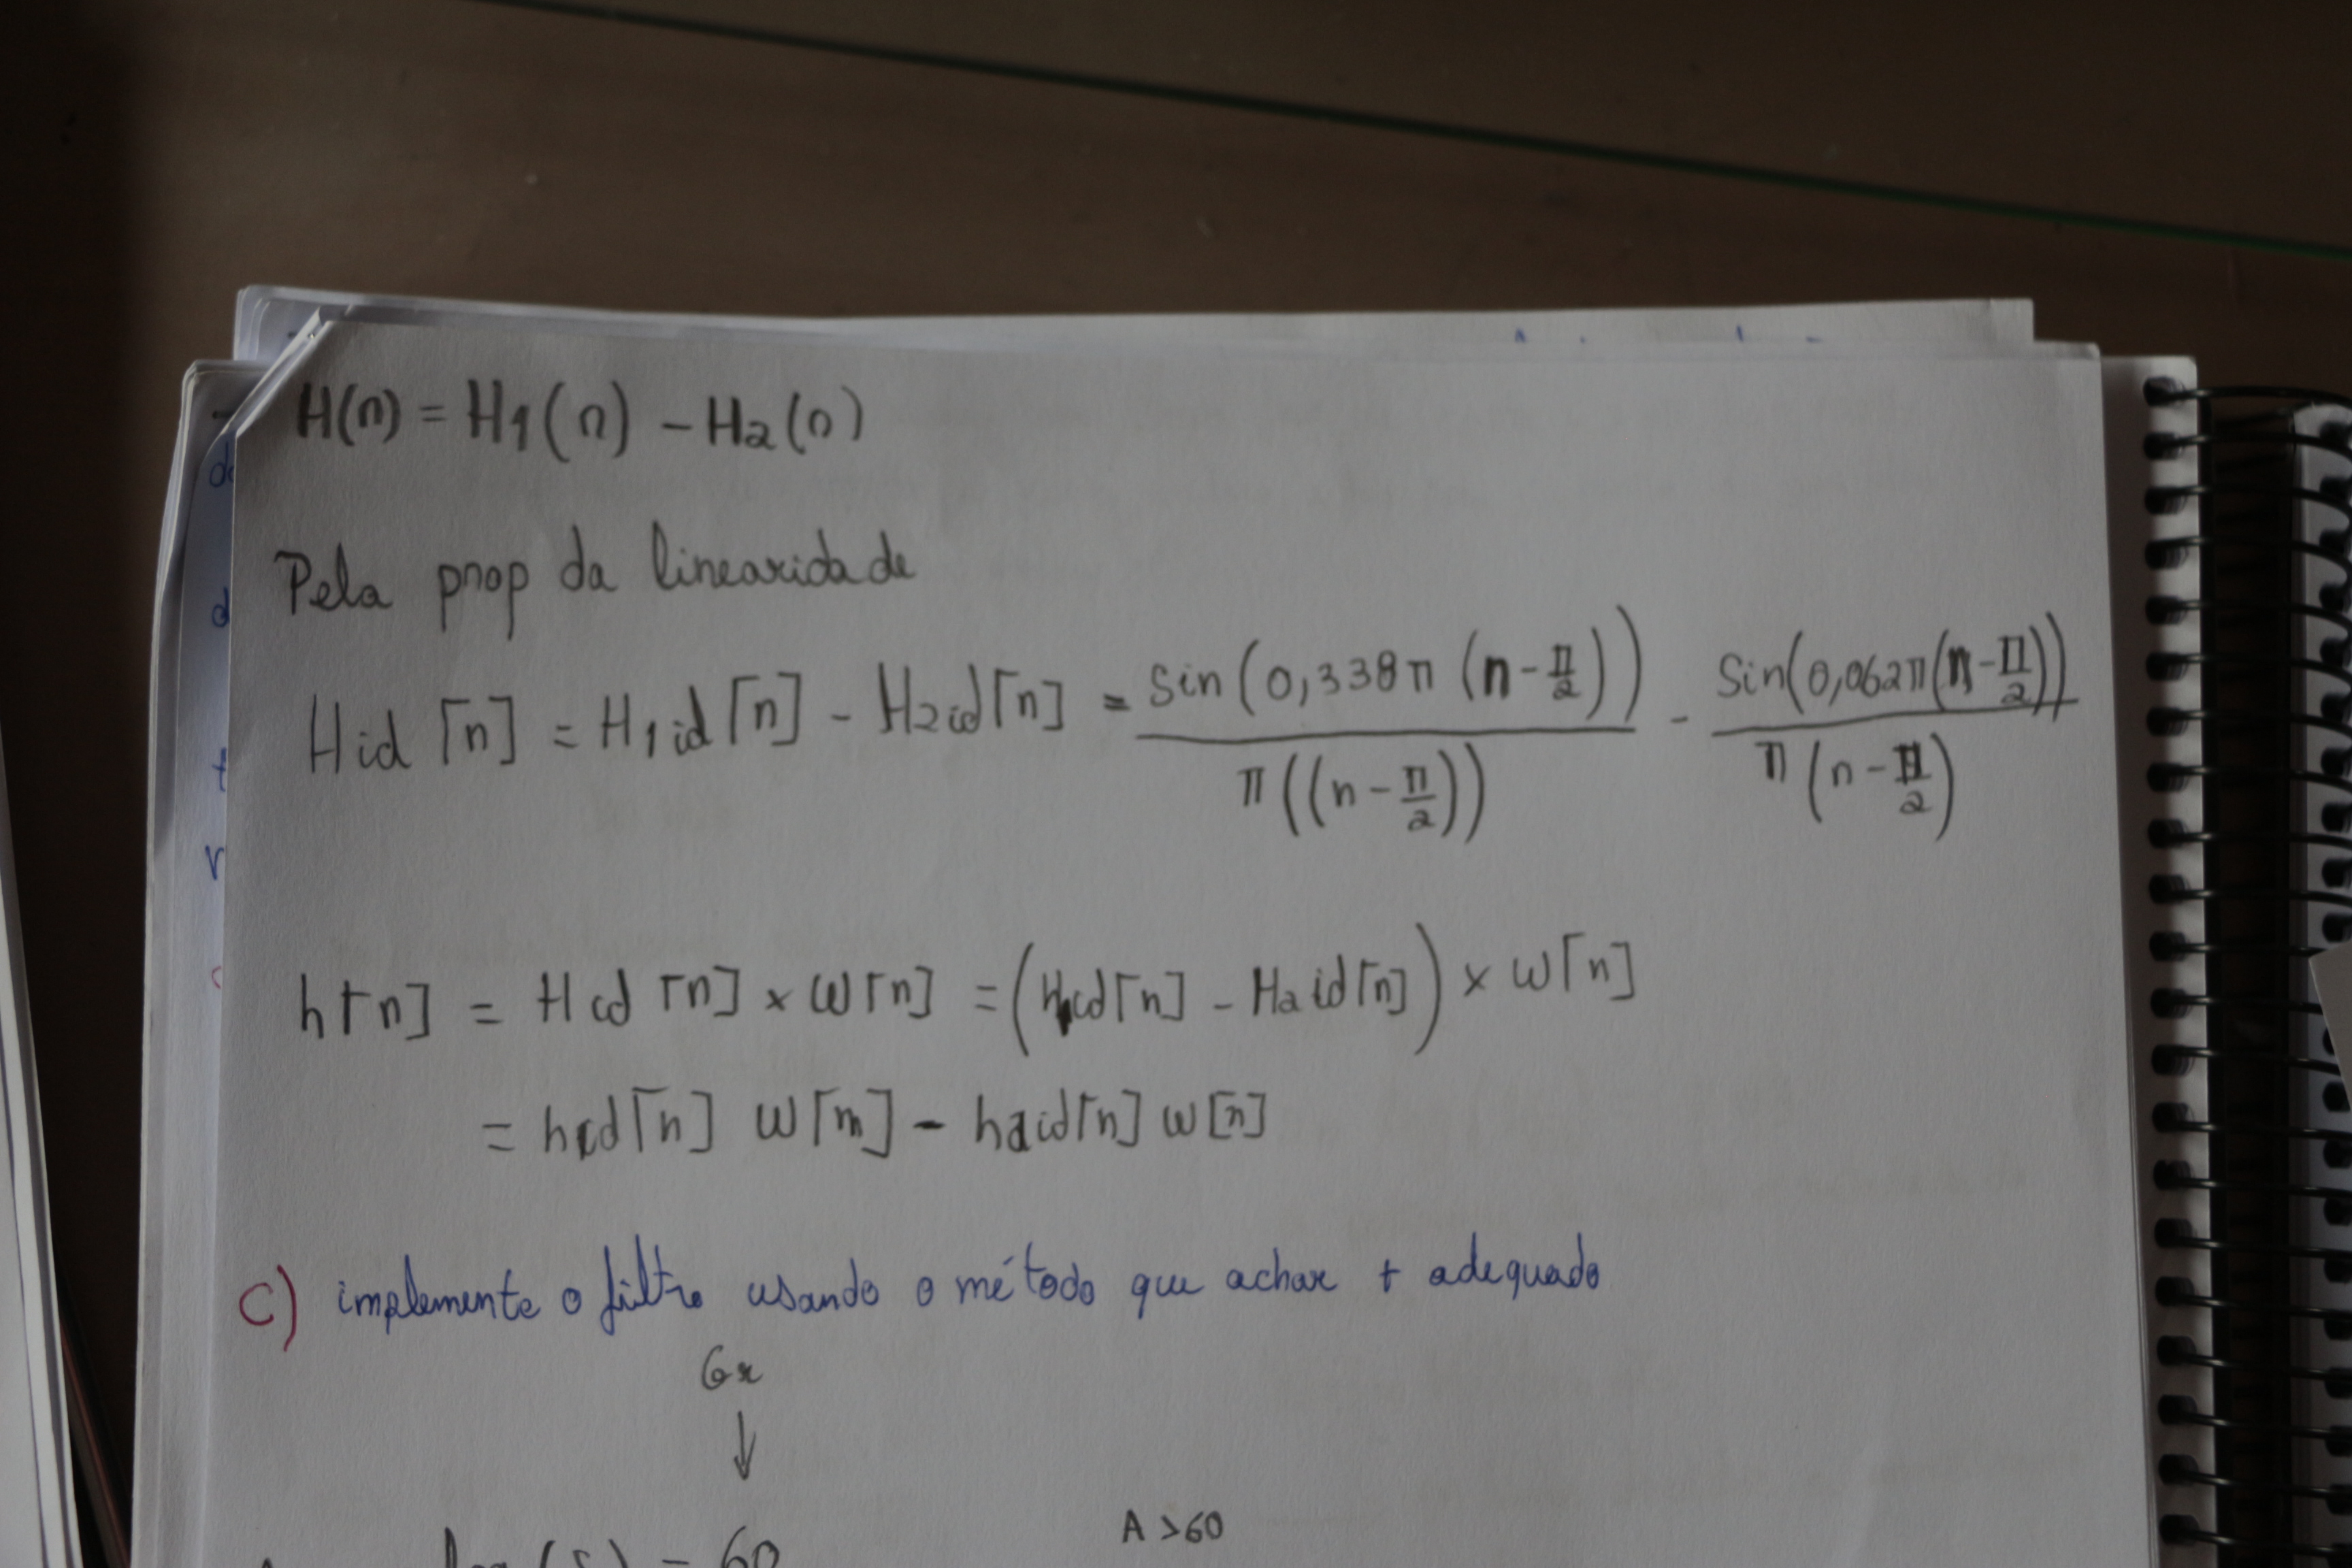 H(n) = H1(n) - H2(n)
Pela prop da linearidade
Hid[n] = H1id[n] - H2id[n] = sin(0,338π(n-π/2)) / π((n-π/2)) - sin(0,062π(n-π/2)) / π(n-π/2)
h[n] = Hid[n] × w[n] = (H1id[n] - H2id[n]) × w[n]
= h1d[n] w[n] - h2id[n] w[n]
c) implemente o filtro usando o método que achar + adequado
↓
A > 60
= 60